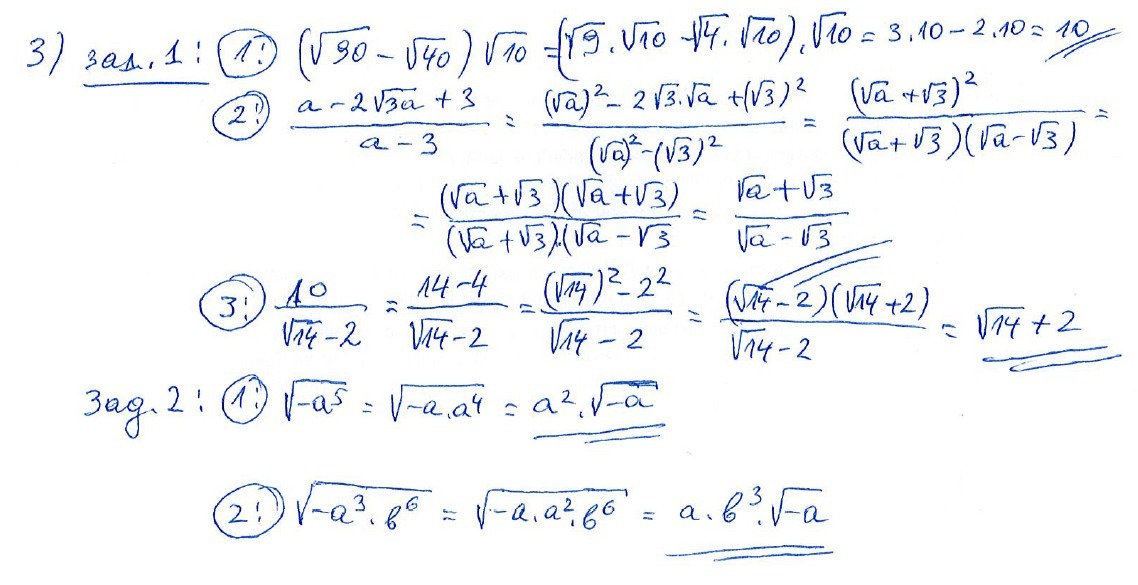 3) зад. 1: 1: (√90 - √40) √10 = (√9 . √10 - √4 . √10) . √10 = 3.10 - 2.10 = 10
2: (a - 2√3a + 3)/(a - 3) = ((√a)² - 2√3.√a + (√3)²)/((√a)² - (√3)²) = (√a + √3)²/((√a + √3)(√a - √3)) =
= ((√a + √3)(√a + √3))/((√a + √3).(√a - √3) = (√a + √3)/(√a - √3)
3: 10/(√14 - 2) = (14 - 4)/(√14 - 2) = ((√14)² - 2²)/(√14 - 2) = ((√14 - 2)(√14 + 2))/(√14 - 2) = √14 + 2
Зад. 2: 1: √-a⁵ = √-a.a⁴ = a².√-a
2: √-a³.b⁶ = √-a.a².b⁶ = a.b³.√-a